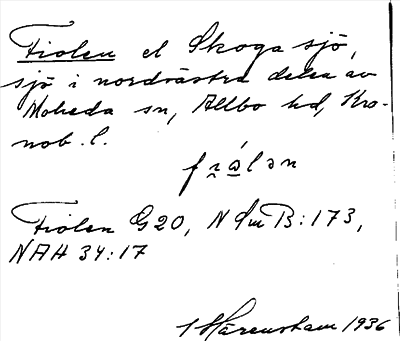 Fiolen el Skoga sjö,
sjö i nordvästra delen av
Moheda sn, Allbo hd, Kro-
nob. l.
Fiolen G20, N Sm B:173,
NAH 34:17
Härenstam 1936